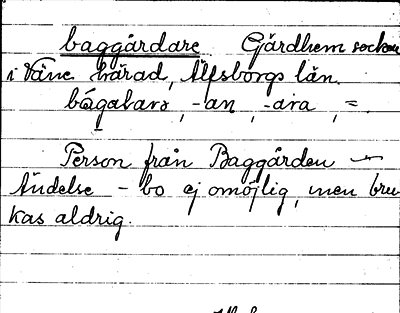 baggårdare Gärdhem socken
i Väne härad, Älfsborgs län.
bágabarə, -an, -ara, =.
Person från Baggården –
Ändelse – bo ej omöjlig, men bru-
kas aldrig.